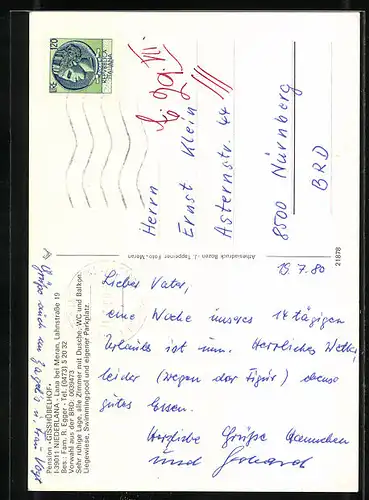 Pension »GISSHÜBELHOF«
I-39011 NIEDERLANA - Lana bei Meran, Lahnstraße 19
Bes.: Fam. R. Egger - Tel. (0473) 5 20 32
Vorwahl aus der BRD: 0039473
Sehr ruhige Lage, alle Zimmer mit Dusche, WC und Balkon.
Liegewiese, Swimmingpool und eigener Parkplatz.
19.7.80
Lieber Vater,
eine Woche unseres 14 tägigen
Urlaubs ist um. Herrliches Wetter,
leider (wegen der Figur) ebenso
gutes Essen.
Herzliche Grüße Hannchen
und Gerhard
Grüße auch an
u. Frau Vogt
Athesiadruck Bozen - J. Tappeiner Foto, Meran
21878
120
Herrn
Ernst Klein
Asternstr. 44
8500 Nürnberg
BRD